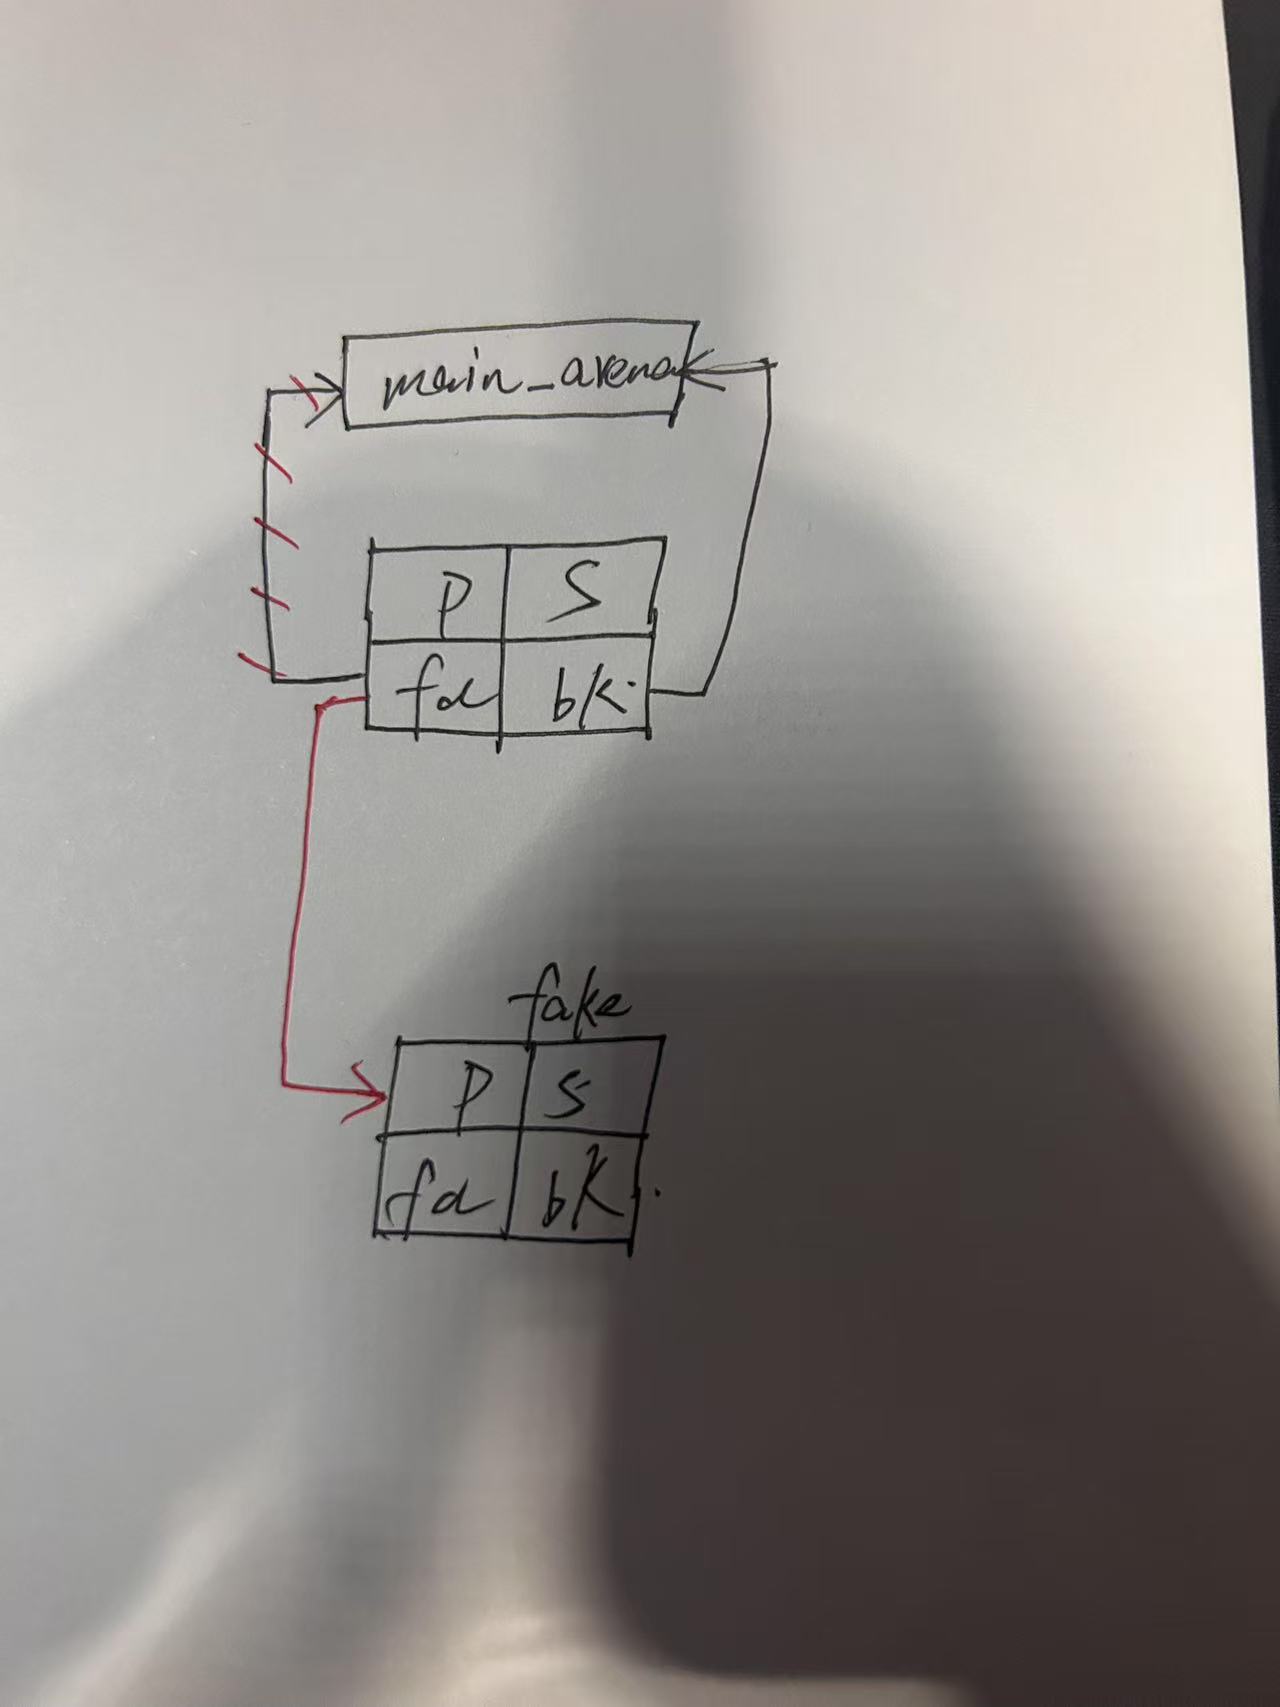 main_arena
P S
fd bk.
fake
P S
fd bk.